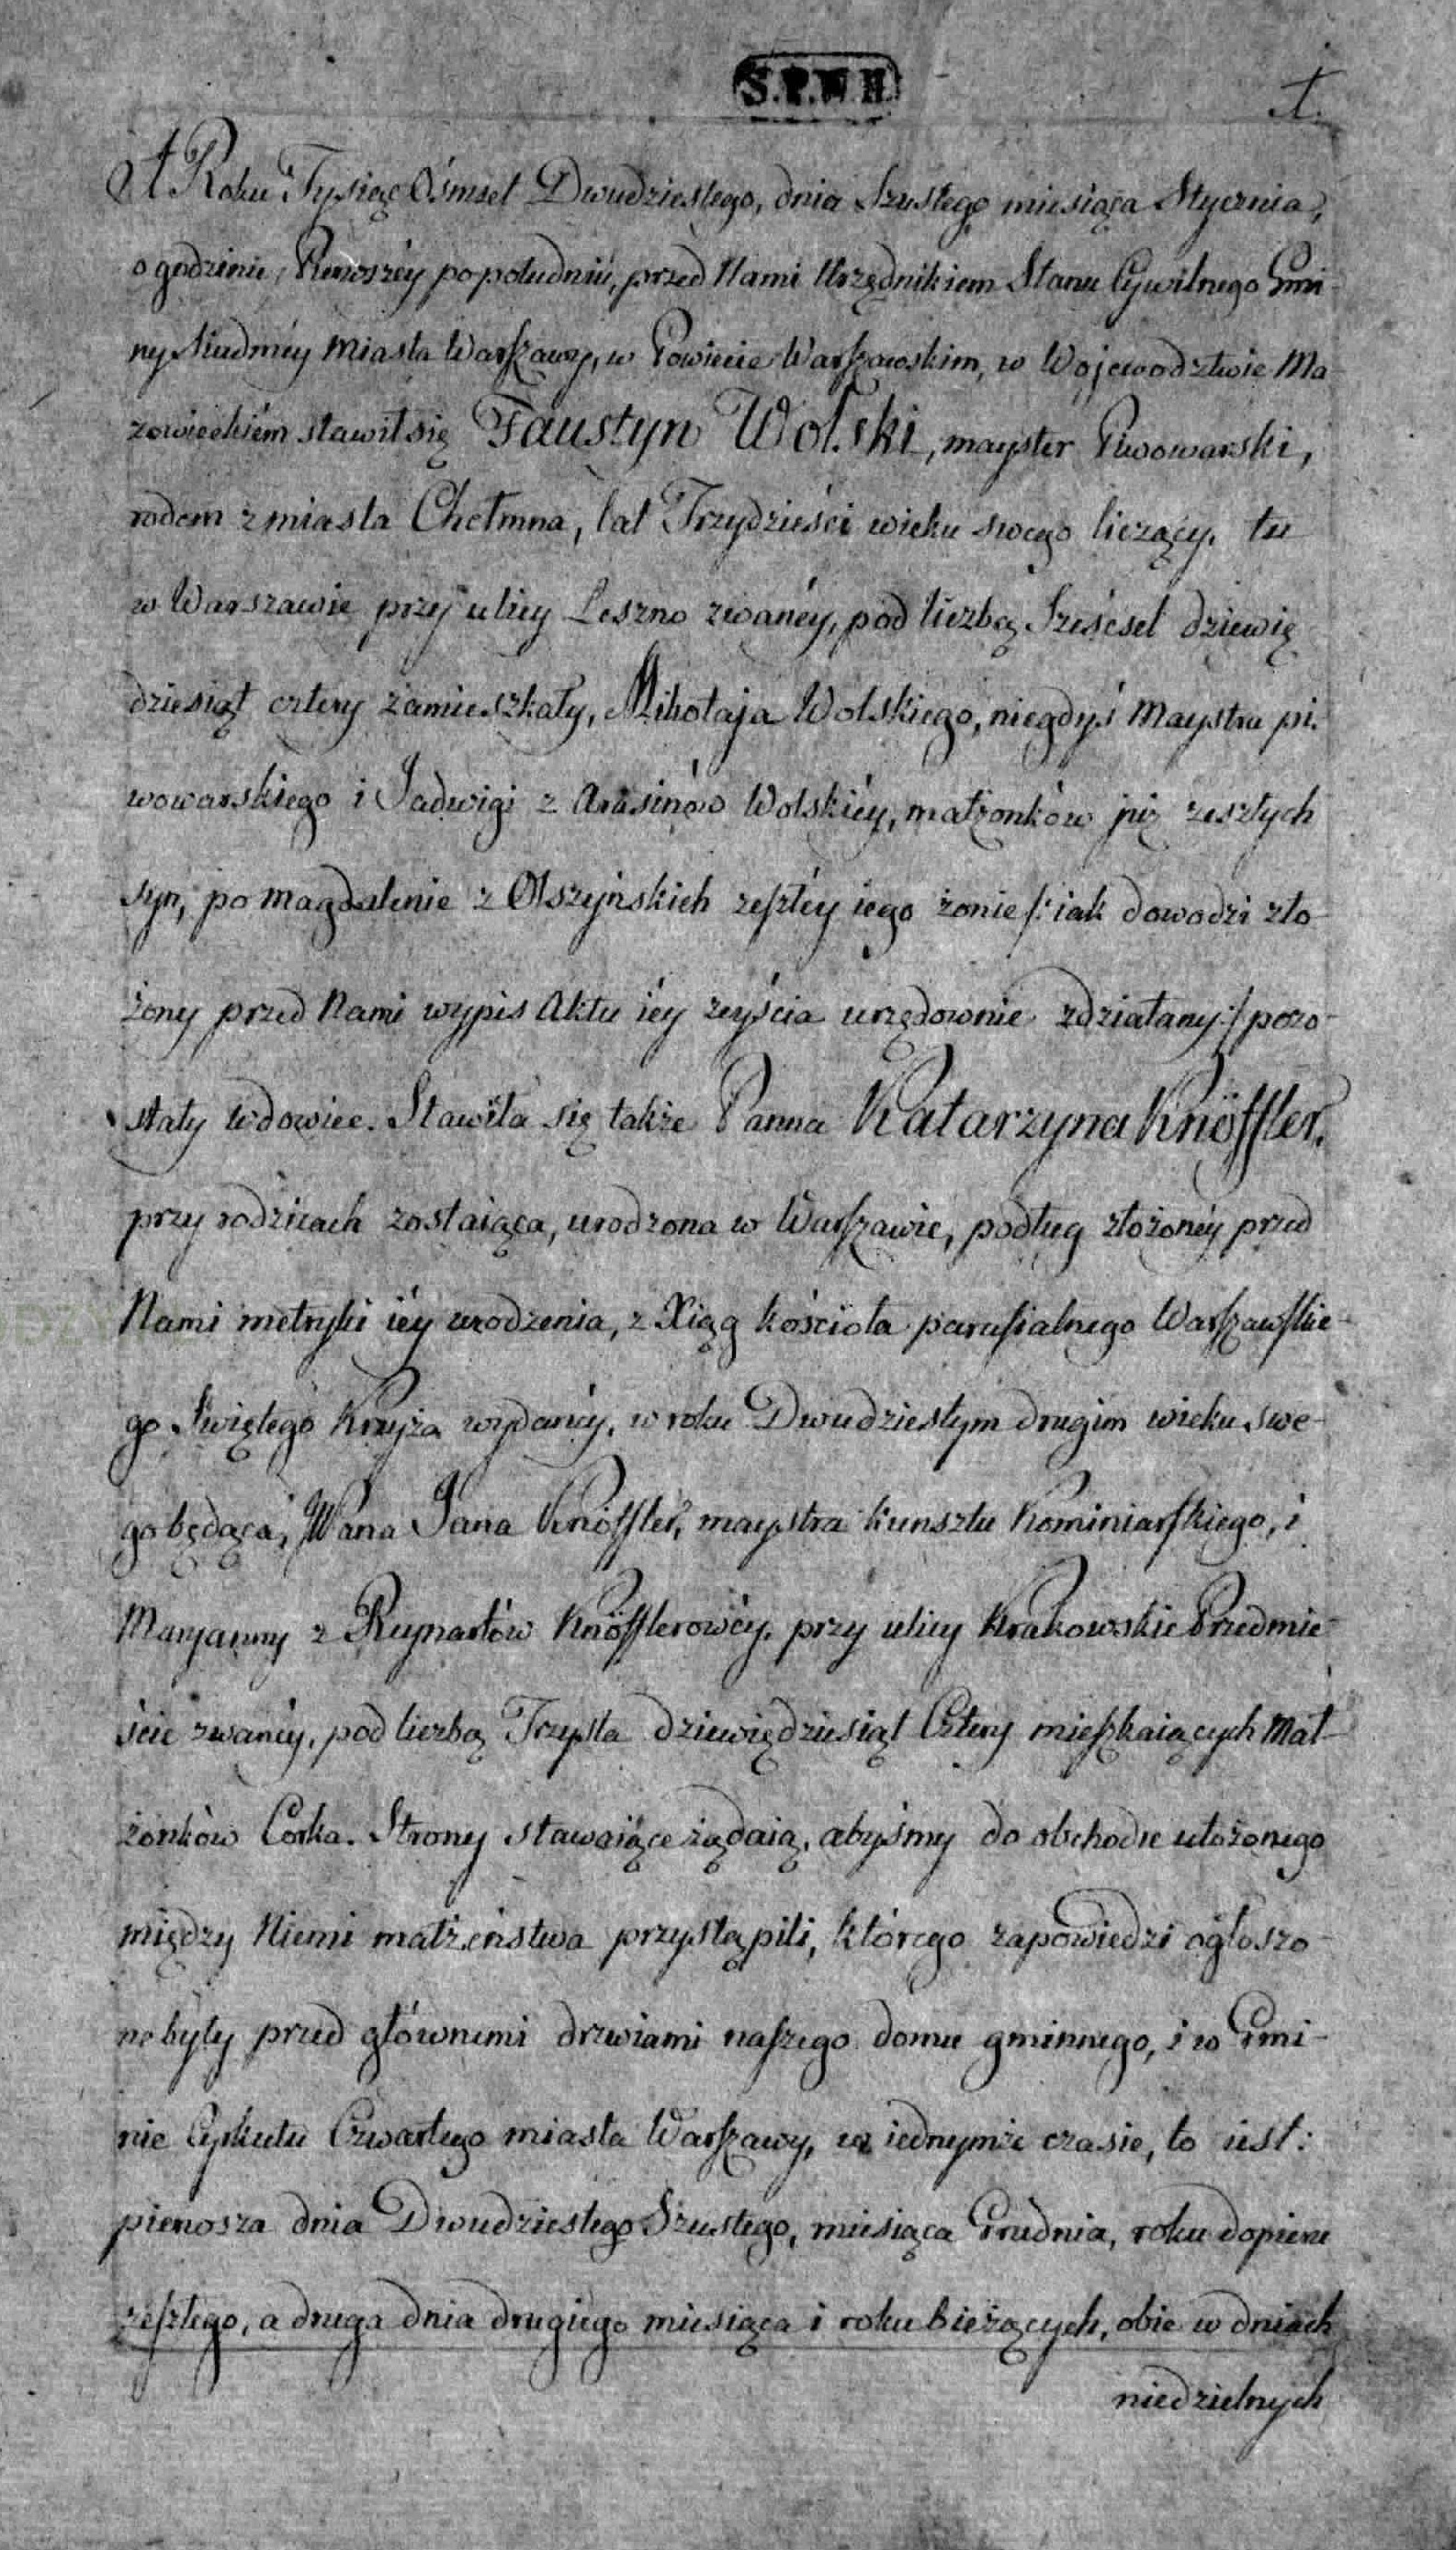 S.P.W.H.
1.
Roku Tysiąc Ośmset Dwudziestego, dnia Szustego miesiąca Stycznia,
o godzinie Pierwszéy po południu, przed Nami Urzędnikiem Stanu Cywilnego Gmi-
ny Siudméy Miasta Warszawy, w Powiecie Warszawskim, w Wojewodztwie Ma-
zowieckiém stawił się Faustyn Wolski, mayster Piwowarski,
rodem z miasta Chełmna, lat Trzydzieści wieku swego liczący, tu
w Warszawie przy ulicy Leszno zwanéy, pod liczbą Sześćset dziewię
dziesiąt cztery zamieszkały, Mikołaja Wolskiego, niegdyś Maystra pi-
wowarskiego i Jadwigi z Arasinów Wolskiéy, małżonków już zeszłych
syn, po Magdalenie z Olszyńskich zeszłéy iego żonie /: iak dowodzi zło-
żony przed Nami wypis Aktu iéy zeyścia urzędownie zdziałany :/ pozo-
stały wdowiec. Stawiła się także Panna Katarzyna Knöffler,
przy rodzicach zostaiąca, urodzona w Warszawie, podług złożonéy przed
Nami metryki iéy urodzenia, z Xiąg kościoła parafialnego Warszawskie-
go Swiętego Krzyża wydanéy, w roku Dwudziestym drugim wieku swe-
go będąca, Pana Jana Knöffler, maystra kunsztu Kominiarskiego, i
Maryanny z Reynartów Knöfflerowéy, przy ulicy Krakowskie Przedmie-
ście zwanéy, pod liczbą Trzysta dziewiędziesiąt Cztery mieszkaiących Mał-
żonków Corka. Strony stawaiące żądaią, abyśmy do obchodu ułożonego
między Niemi małżeństwa przystąpili, którego zapowiedzi ogłoszo-
ne były przed głównemi drzwiami naszego domu gminnego, i w Gmi-
nie Cyrkułu Czwartego miasta Warszawy, w iednymże czasie, to iest:
pierwsza dnia Dwudziestego Szustego, miesiąca Grudnia, roku dopiero
zeszłego, a druga dnia drugiego miesiąca i roku bieżących, obie w dniach
niedzielnych